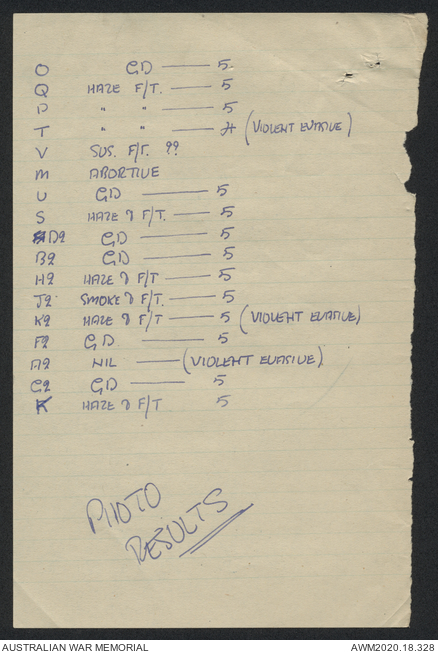 O GD —— 5
Q HAZE F/T. —— 5
P " " —— 5
T " " —— 4 (VIOLENT EVASIVE)
V SUS. F/T. ??
M ABORTIVE
U GD —— 5
S HAZE & F/T. —— 5
D2 GD —— 5
B2 GD —— 5
H2 HAZE & F/T —— 5
J2 SMOKE & F/T. —— 5
K2 HAZE & F/T —— 5 (VIOLENT EVASIVE)
F2 GD —— 5
A2 NIL —— (VIOLENT EVASIVE)
C2 GD —— 5
K HAZE & F/T 5
PHOTO
RESULTS
AUSTRALIAN WAR MEMORIAL AWM2020.18.328